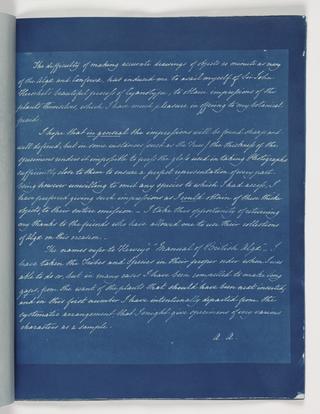 The difficulty of making accurate drawings of objects as minute as many
of the Algæ and Confervæ, has induced me to avail myself of Sir John
Herschel's beautiful process of Cyanotype, to obtain impressions of the
plants themselves, which I have much pleasure in offering to my botanical
friends.
I hope that in general the impressions will be found sharp and
well defined, but in some instances (such as the Fuci) the thickness of the
specimens renders it impossible to press the glass used in taking Photographs
sufficiently close to them to ensure a perfect representation of every part.
Being however unwilling to omit any species to which I had access, I
have preferred giving such impressions as I could obtain of these thick
objects, to their entire omission - I take this opportunity of returning
my thanks to the friends who have allowed me to use their collections
of Algæ on this occasion.
The names refer to Harvey's "Manual of British Algæ" - I
have taken the Tribes and Species in their proper order when I was
able to do so, but in many cases I have been compelled to make long
gaps, from the want of the plants that should have been next inserted,
and in this first number I have intentionally departed from the
systematic arrangement that I might give specimens of very various
characters as a sample.
A. A.